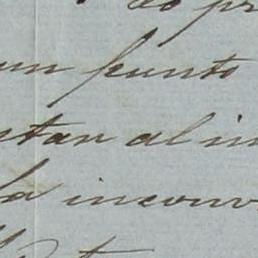 do pr
un punto
stan al in
la inconv